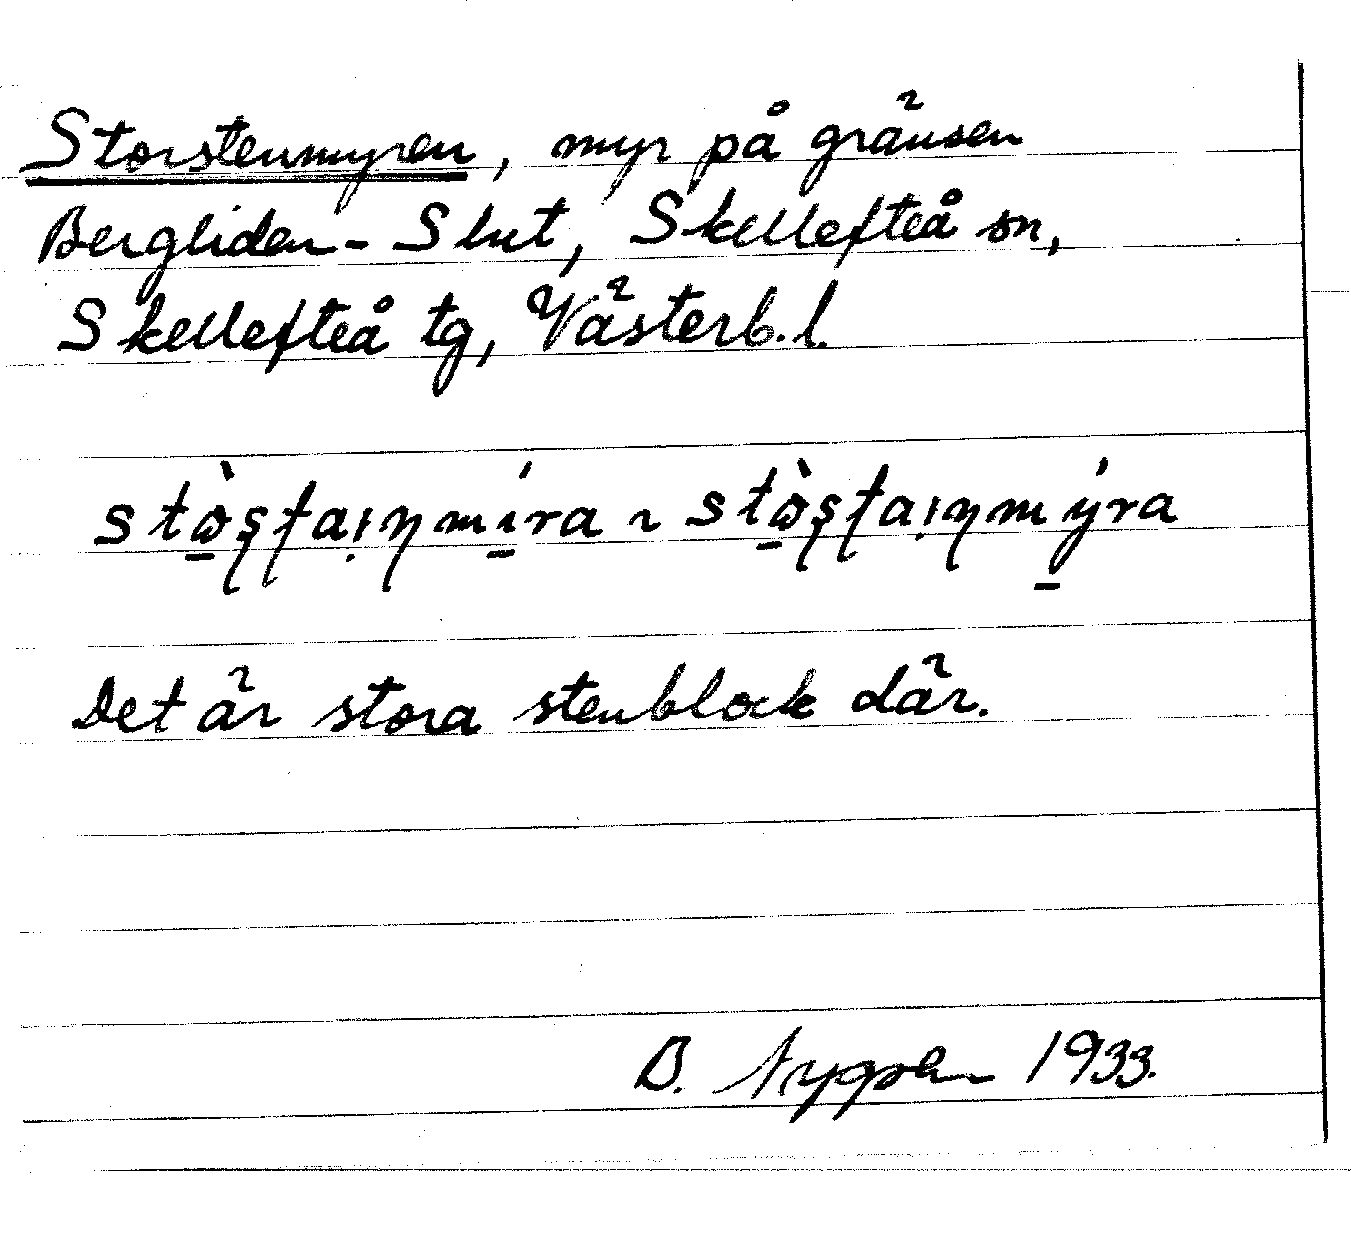 Storstenmyren, myr på gränsen
Bergliden - Slut, Skellefteå sn,
Skellefteå tg, Västerb. l.
stò̱ʂʈaı̣ɳmí̱ra ~ stò̱ʂʈaı̣ɳmý̱ra
Det är stora stenblock där.
B. Nygren 1933.